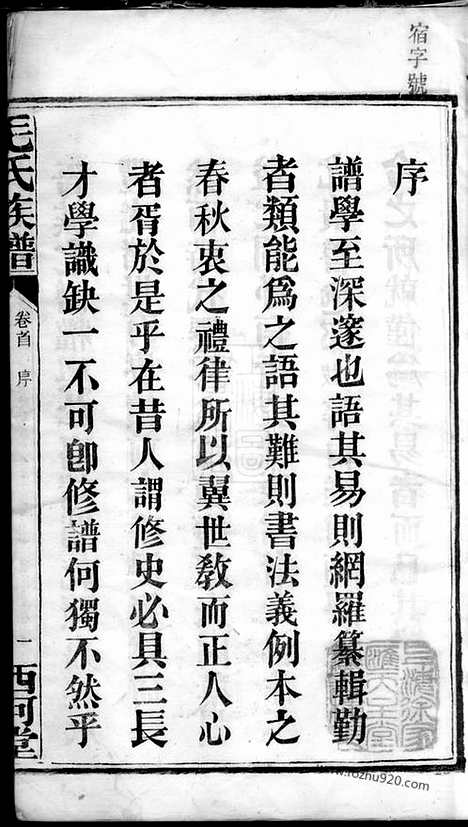 宿字號
序
譜學至深邃也語其易則網羅纂輯勤
者類能爲之語其難則書法義例本之
春秋衷之禮律所以翼世敎而正人心
者胥於是乎在昔人謂修史必具三長
才學識缺一不可卽修譜何獨不然乎
毛氏族譜
卷首
序
一
西河堂
www.lozhu920.com